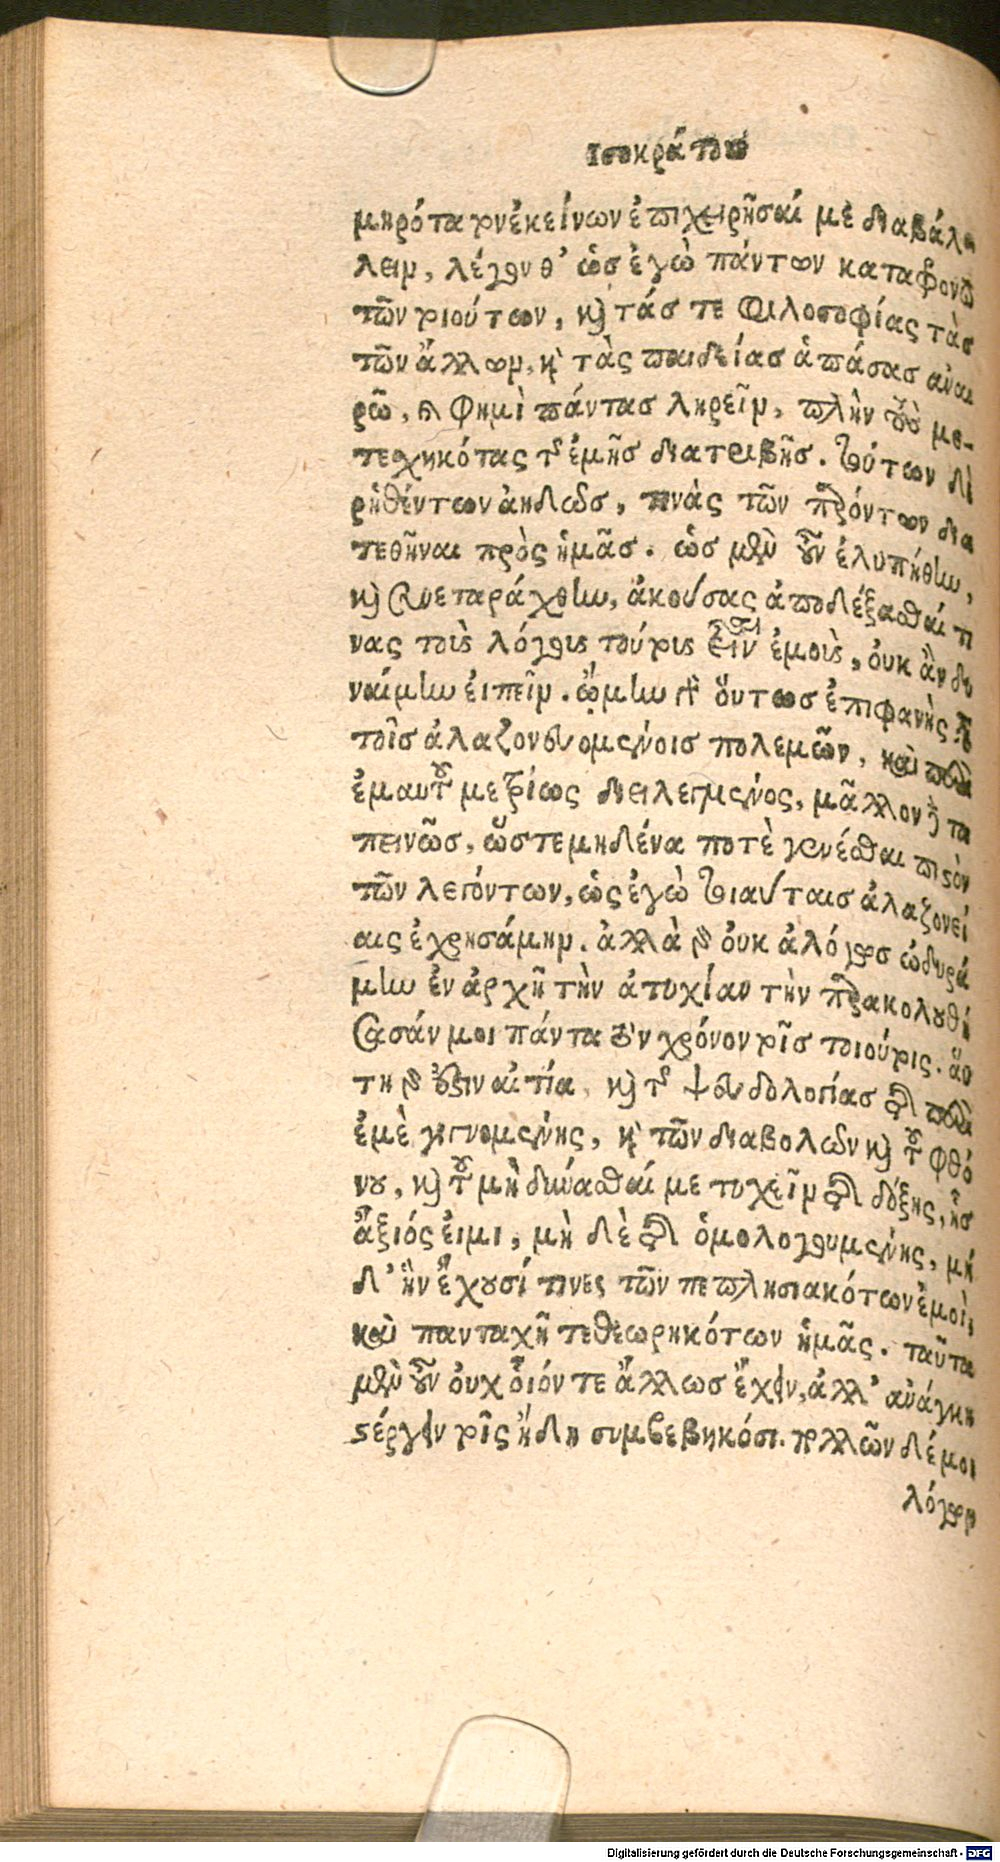 Ισοκράτους
μηρότατον ἐκείνων ἐπιχειρῆσαί με διαβάλ
λειν, λέγονθ' ὡς ἐγὼ πάντων καταφρονῶ
τῶν τοιούτων, καὶ τάς τε φιλοσοφίας τὰς
τῶν ἄλλων, καὶ τὰς παιδείας ἁπάσας ἀναι
ρῶ, καὶ φημὶ πάντας ληρεῖν, πλὴν τοὺς με-
τεχηκότας τῆς ἐμῆς διατριβῆς. τούτων δὲ
ῥηθέντων ἀηδῶς, τινὰς τῶν παρόντων δια
τεθῆναι πρὸς ἡμᾶς. ὡς μὲν οὖν ἐλυπήθην,
καὶ συνεταράχθην, ἀκούσας ἀποδέξασθαί τι
νας τοὶς λόγοις τούτοις ἐμοὶς, ὀυκ ἂν δυ
ναίμην ἐιπεῖν. ᾤμην γὰρ ὅυτως ἐπιφανὴς
τοῖς ἀλαζονευομένοις πολεμῶν, καὶ περὶ
ἐμαυτοῦ μετρίως διειλεγμένος, μᾶλλον δὲ τα
πεινῶς, ὥστε μηδένα ποτὲ γενέσθαι πιστὸν
τῶν λεγόντων, ὡς ἐγὼ τοιαύταις ἀλαζονεί
αις ἐχρησάμην. ἀλλὰ γὰρ ὀυκ ἀλόγως ὠδυρά
μην ἐν ἀρχῆ τὴν ἀτυχίαν τὴν παρακολουθή
σασάν μοι πάντα τὸν χρόνον τοῖς τοιούτοις. ἅυ
τη γάρ ἐστιν αἰτία, καὶ τῆς ψευδολογίας τῆς περὶ
ἐμὲ γιγνομένης, καὶ τῶν διαβολῶν καὶ τοῦ φθό
νου, καὶ τοῦ μὴ δύνασθαί με τυχεῖν τῆς δόξης, ἧς
ἄξιός ἐιμι, μὴ δὲ τῆς ὁμολογουμένης, μή
δ' ἣν ἔχουσί τινες τῶν πεπλησιακότων ἐμοὶ,
καὶ πανταχῆ τεθεωρηκότων ἡμᾶς. ταῦτα
μὲν οὖν ὀυχ ὅιόν τε ἄλλως ἔχειν, ἀλλ' ἀνάγκη
στέργειν τοῖς ἤδη συμβεβηκόσι. πολλῶν δέ μοι
λόγων
Digitalisierung gefördert durch die Deutsche Forschungsgemeinschaft - DFG